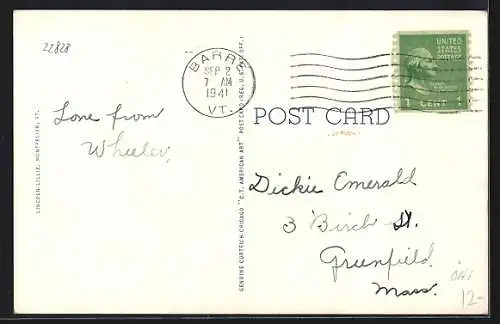 22828
BARRE
SEP 2
7 AM
1941
VT.
UNITED
STATES
POSTAGE
1 CENT 1
POST CARD
Love from
Wheeler,
Dickie Emerald
3 Birch St.
Greenfield
Mass.
12-
LINCOLN-LILLIE, MONTPELIER, VT.
GENUINE CURTEICH-CHICAGO "C.T. AMERICAN ART" POST CARD (REG. U.S. PAT. OFF.)